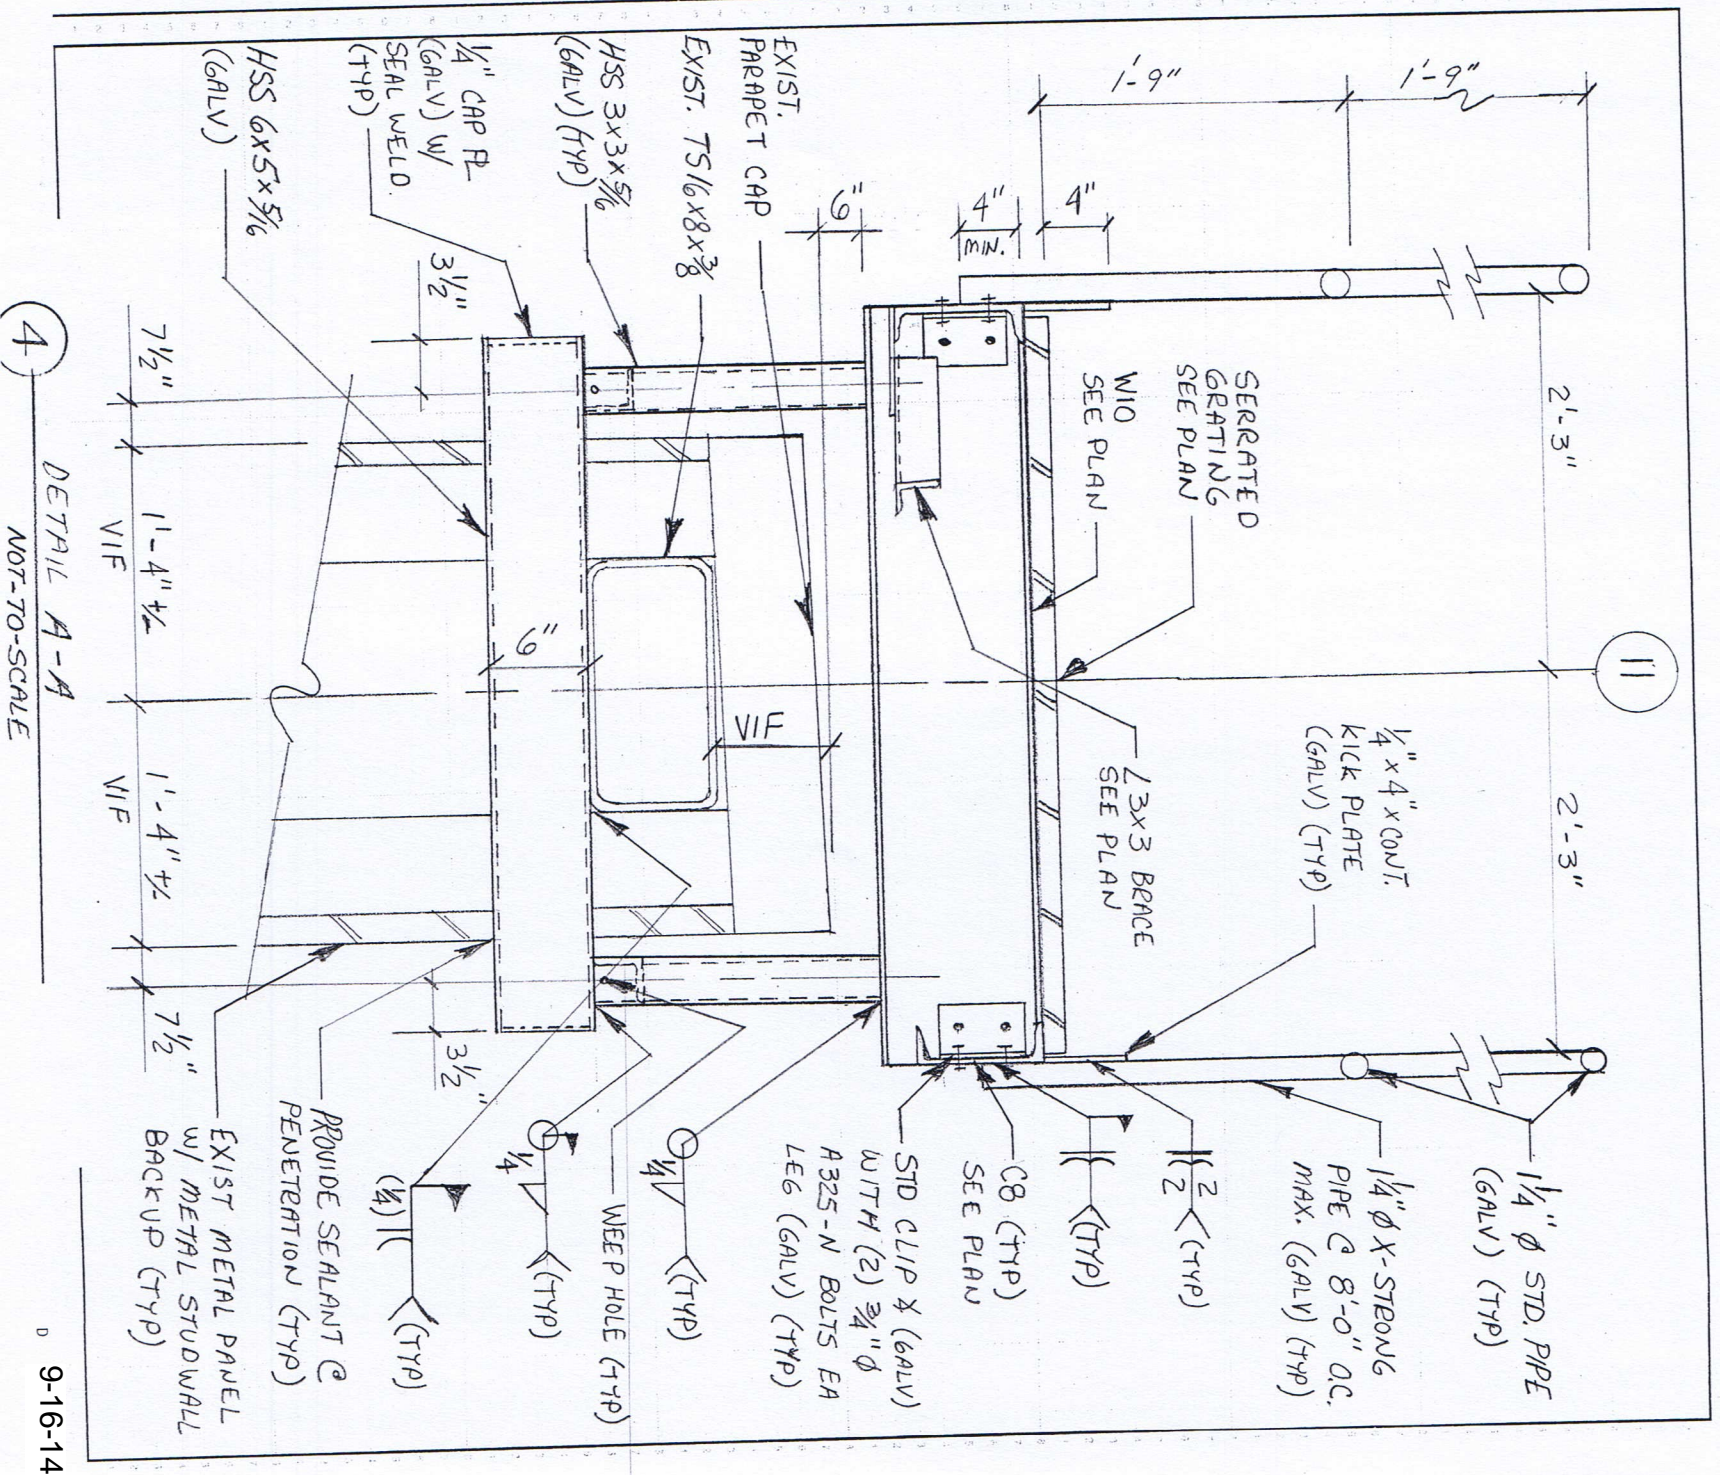 11
2'-3"
2'-3"
1'-9"
1'-9"
4"
4"
MIN.
6"
SERRATED
GRATING
SEE PLAN
W10
SEE PLAN
1/4" x 4" x CONT.
KICK PLATE
(GALV) (TYP)
L3x3 BRACE
SEE PLAN
EXIST.
PARAPET CAP
EXIST. TS16x8x3/8
HSS 3x3x5/16
(GALV) (TYP)
1/4" CAP PL
(GALV) W/
SEAL WELD
(TYP)
HSS 6x5x5/16
(GALV)
1 1/4" Ø STD. PIPE
(GALV) (TYP)
1 1/4" Ø X-STRONG
PIPE @ 8'-0" O.C.
MAX. (GALV) (TYP)
2
2
(TYP)
(TYP)
C8 (TYP)
SEE PLAN
STD CLIP ∡ (GALV)
WITH (2) 3/4" Ø
A325-N BOLTS EA
LEG (GALV) (TYP)
1/4
(TYP)
WEEP HOLE (TYP)
1/4
(TYP)
(1/4)
(TYP)
PROVIDE SEALANT @
PENETRATION (TYP)
EXIST METAL PANEL
W/ METAL STUDWALL
BACKUP (TYP)
VIF
6"
3 1/2"
3 1/2"
7 1/2"
1'-4" +/-
VIF
1'-4" +/-
VIF
7 1/2"
4
DETAIL A-A
NOT-TO-SCALE
D
9-16-14